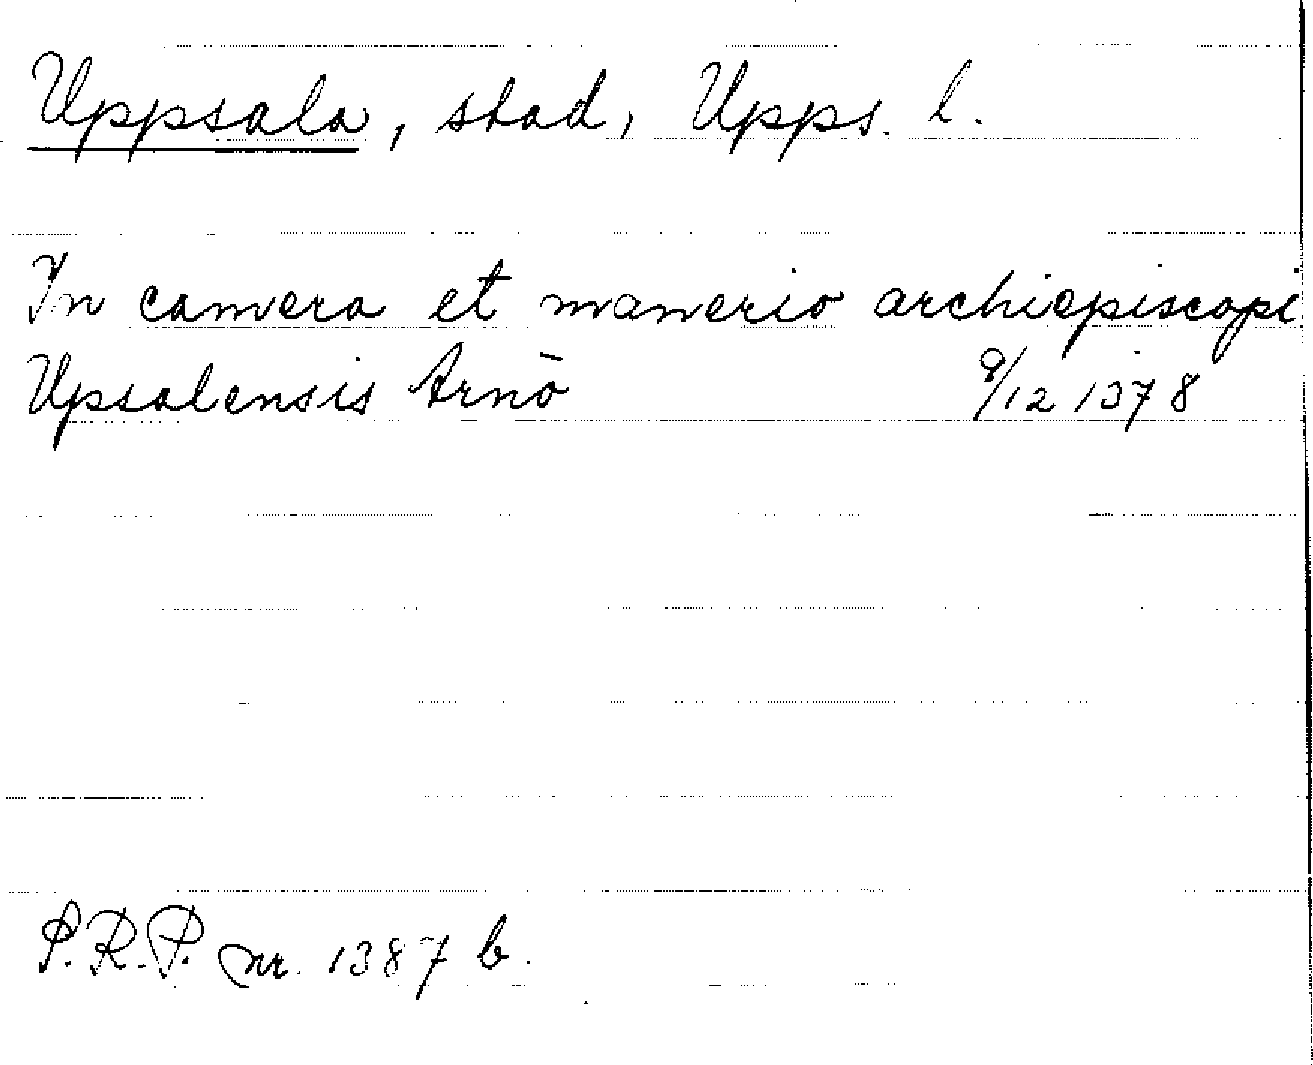 Uppsala, stad, Upps. l.
In camera et manerio archiepiscopi
Upsalensis Arnö 9/12 1378
S.R.P. nr. 1387 b.